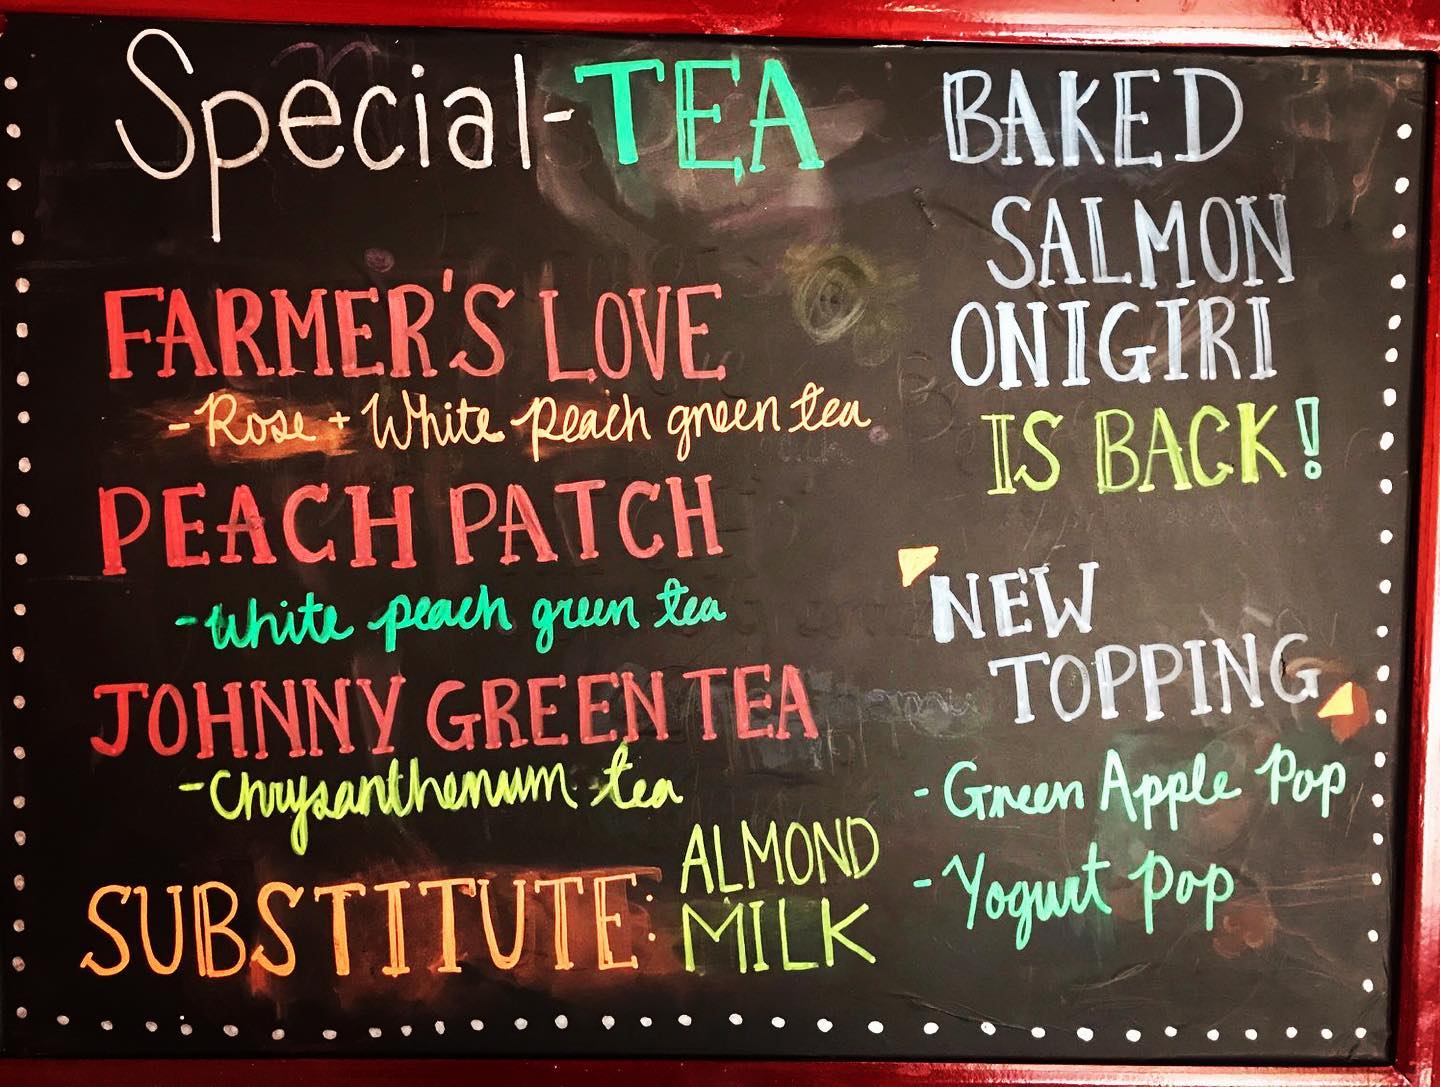 Special-TEA
FARMER'S LOVE
- Rose + White peach green tea
PEACH PATCH
- White peach green tea
JOHNNY GREEN TEA
- Chrysanthemum tea
SUBSTITUTE: ALMOND
MILK
BAKED
SALMON
ONIGIRI
IS BACK!
NEW
TOPPING
- Green Apple Pop
- Yogurt Pop